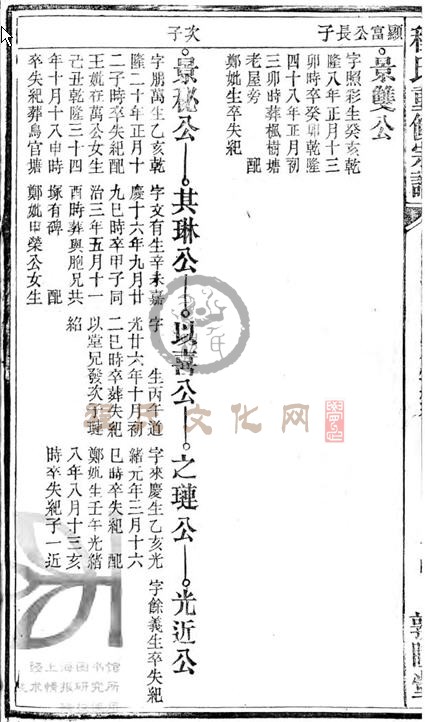 顯富公長子
景雙公
字照彩生癸亥乾
隆八年正月十三
卯時卒癸卯乾隆
四十八年正月初
三卯時葬楓樹塘
老屋旁 配
鄭妣生卒失紀
次子
景秘公 其琳公 以喜公 之璉公 光近公
字朋萬生乙亥乾
隆二十年正月十
二子時卒失紀配
王妣在萬公女生
己丑乾隆三十四
年十月十八申時
卒失紀葬烏官塘
字文有生辛未嘉
慶十六年九月廿
九巳時卒甲子同
治三年五月十一
酉時葬與胞兄共
塚有碑 配
鄭妣甲榮公女生
字 生丙午道
光廿六年十月初
二巳時卒葬失紀
以堂兄發次子璉
紹
字來慶生乙亥光
緒元年三月十六
巳時卒失紀 配
鄭妣生壬午光緒
八年八月十三亥
時卒失紀子一近
字餘義生卒失紀
文化网
经上海图书馆
术情报研究所